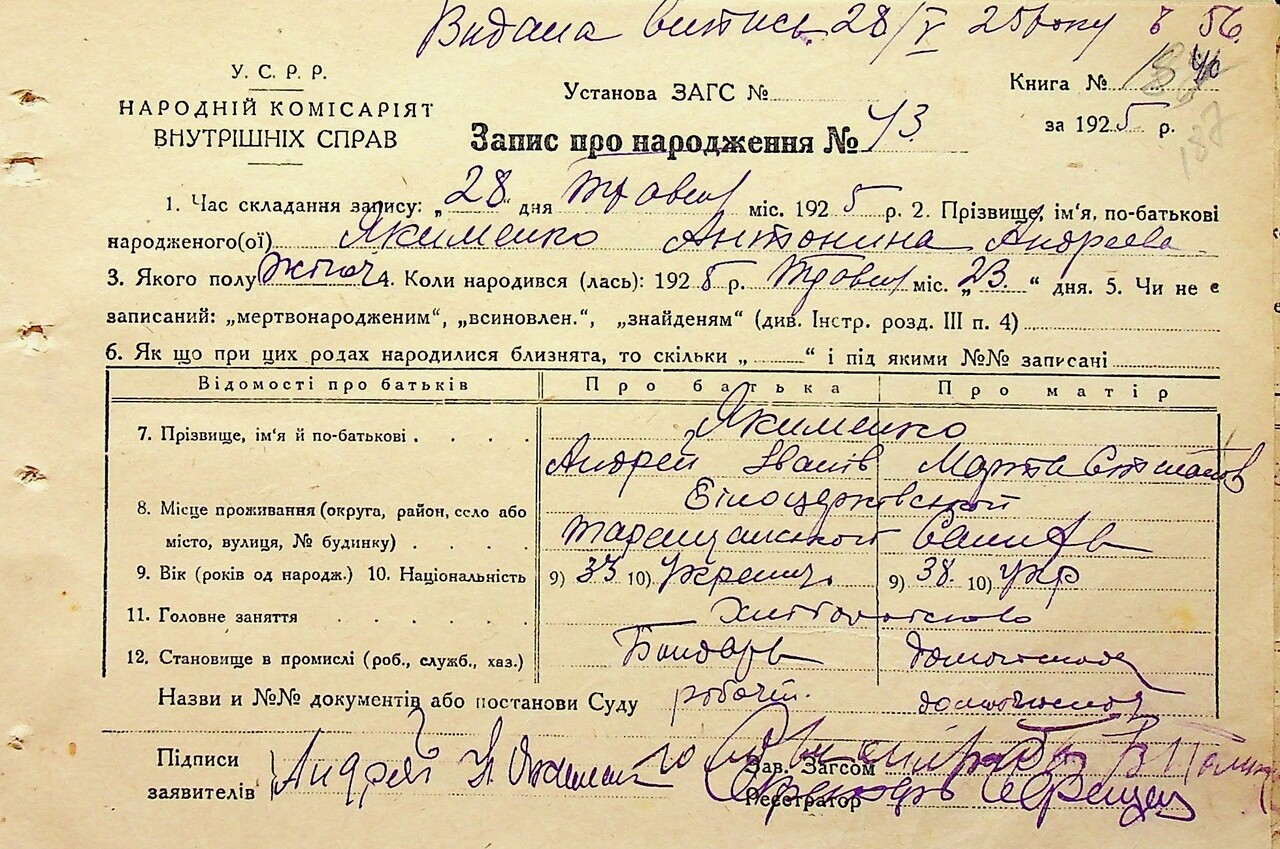 Видана витись 28/V 25 року б 56.
У. С. Р. Р.
НАРОДНІЙ КОМІСАРІЯТ
ВНУТРІШНІХ СПРАВ
Установа ЗАГС №
Книга №
за 1925 р.
187
Запис про народження № 43.
1. Час складання запису: „28“ дня Травня міс. 1925 р. 2. Прізвище, ім‘я, по-батькові
народженого(ої) Якименко Антонина Андреева
3. Якого полу жіноч 4. Коли народився (лась): 1925 р. Травня міс. „23.“ дня. 5. Чи не є
записаний: „мертвонародженим“, „всиновлен.“, „знайденям“ (див. Інстр. розд. III п. 4)
6. Як що при цих родах народилися близнята, то скільки „ “ і під якими №№ записані
Відомості про батьків Про батька Про матір
7. Прізвище, ім‘я й по-батькові . . . . Якименко
Андрей Іванів Марта
8. Місце проживання (округа, район, село або Білоцерковської
місто, вулиця, № будинку) . . . . Таращанської
9. Вік (років од народж.) 10. Національність 9) 33 10) Украін. 9) 38. 10) укр
11. Головне заняття . . . . . . Хліборобство
12. Становище в промислі (роб., служб., хаз.) Бондарь
Назви и №№ документів або постанови Суду робочий.
Підписи
заявителів Андрей
Зав. Загсом
Реєстратор